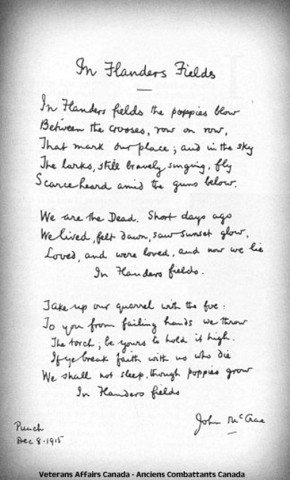 In Flanders Fields
In Flanders fields the poppies blow
Between the crosses, row on row,
That mark our place; and in the sky
The larks, still bravely singing, fly
Scarce heard amid the guns below.
We are the Dead. Short days ago
We lived, felt dawn, saw sunset glow,
Loved, and were loved, and now we lie
In Flanders fields.
Take up our quarrel with the foe:
To you from failing hands we throw
The torch; be yours to hold it high.
If ye break faith with us who die
We shall not sleep, though poppies grow
In Flanders fields
John McCrae
Punch
Dec 8·1915
Veterans Affairs Canada - Anciens Combattants Canada